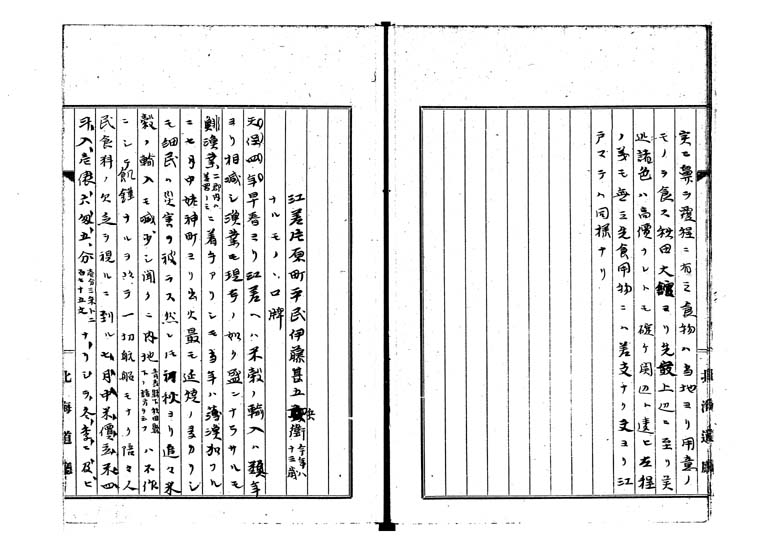 実ニ鼻ヲ覆程ニ有之食物ハ当地ヨリ用意ノ
モノヲ食ス秋田大館ヨリ先最上辺ニ至リ実
以諸色ハ高價ナレトモ碇ケ関辺ト違ヒ左程
ノ義モ無之先食用物ニハ差支ナク夫ヨリ江
戸マテハ同様ナリ
北海道廳
江差片原町平民伊藤甚五兵衛 十三歳
ナルモノヽ口牌
天保四年早春ヨリ江差ヘハ米穀ノ輸入ハ類年
ヨリ相減シ漁業モ現今ノ如ク盛ンナラサルモ
鯡漁業 ニ着手アリシモ當年ハ薄漁加フル
ニ七月中姥神町ヨリ出火最モ延焼ノ多カリシ
モ細民ハ災害ヲ被ラス然レトモ ヨリ追々米
穀ノ輸入モ減少シ聞クニ内地 ハ不作
ニシテ飢饉ナルヲ以テ一切航船モナク陪々人
民食料ノ欠乏ヲ視ルニ到ル七月中米價玄米四
斗入壱俵六匁五分 ナリシヲ冬季ニ及ヒ
北海道廳